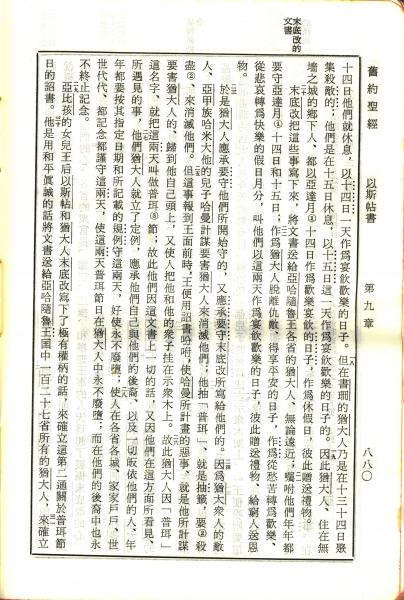 舊約聖經　以斯帖書　第九章　八八〇
末底改的
文書
十四日他們就休息，以十四日一天作爲宴飲歡樂的日子。但在書珊的猶大人乃是在十三十四日聚
集殺敵的；他們是在十五日休息，以十五日這一天作爲宴飲歡樂的日子的。因此猶大人、住在無
墻之城的鄉下人、都以亞達月十四日作爲宴飲歡樂的日子，作爲休假日，彼此贈送禮物。
末底改把這些事寫下來，將文書送給亞哈隨魯王各省的猶大人、無論遠近；囑咐他們年年都
要守亞達月④十四日和十五日，作爲猶大人脫離仇敵、得享平安的日子，作爲從愁苦轉爲歡樂、
從悲哀轉爲快樂的假日月分，叫他們以這兩天作爲宴飲歡樂的日子，彼此贈送禮物、給窮人送恩
物。
於是猶大人應承要守他們所開始守的，又應承要守末底改所寫給他們的。因爲猶大衆人的敵
人、亞甲族哈米大他的兒子哈曼計謀要害猶大人來消滅他們；他抽「普珥」、就是抽籤，要②殺
盡②、來消滅他們。但這事報到王面前時，王便用詔書吩咐，使哈曼所計畫的惡事、就是他所計謀
要害猶大人的、歸到他自己頭上，又使人把他和他的衆子挂在示衆木上。故此猶大人因「普珥」
這名字、就把這兩天叫做普珥⑧節；故此他們因這文書上一切的話，又因他們在這方面所看見、
所遇見的事，他們猶大人就立了定例，應承他們自己與他們的後裔、以及一切皈依他們的人、年
年都要按其指定日期和所記載的規例守這兩天，好使永不廢墮；使人在各省各城、家家戶戶、世
世代代、都記念都謹守這兩天，使這兩天普珥節日在猶大人中永不廢墮；而在他們的後裔中也永
不終止記念。
亞比孩的女兒王后以斯帖和猶大人末底改寫下了極有權柄的話，來確立這第二通關於普珥節
日的詔書。他是用和平眞誠的話將文書送給亞哈隨魯王國中一百二十七省所有的猶大人，來確立